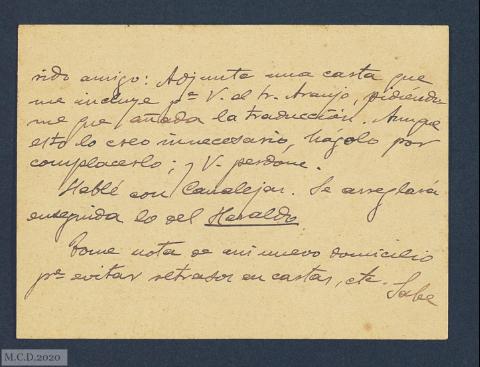 rido amigo: Adjunta una carta que
me incluye pª V. el Sr. Araujo, pidiéndo
me que añada la traducción. Aunque
esto lo creo innecesario, hágolo por
complacerlo; y V. perdone.
Hablé con Canalejas. Se arreglará
enseguida lo del Heraldo.
Tome nota de mi nuevo domicilio
pª evitar retrasos en cartas, etc. Sabe
M.C.D.2020